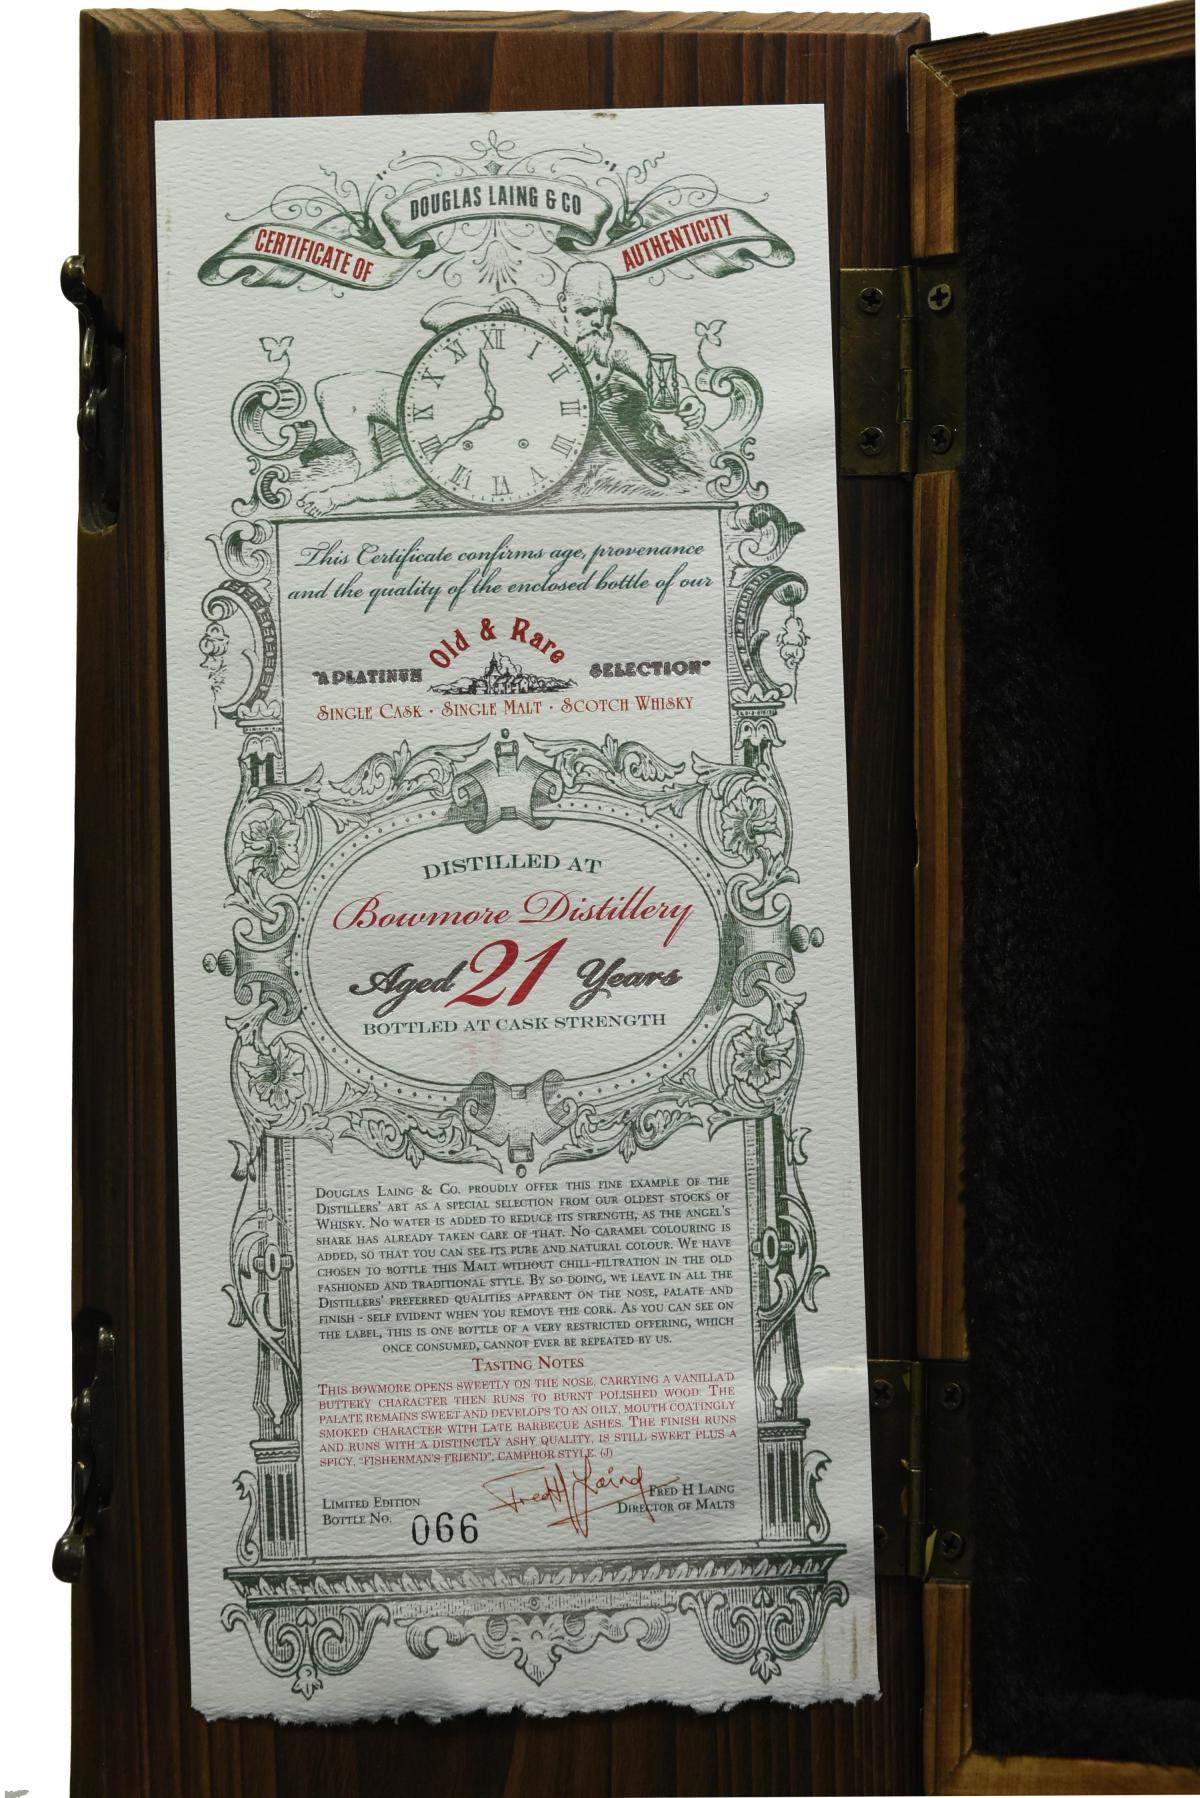 DOUGLAS LAING & CO
CERTIFICATE OF AUTHENTICITY
XII I II III IIII V VI VII VIII IX X XI
This Certificate confirms age, provenance
and the quality of the enclosed bottle of our
Old & Rare
"A PLATINUM SELECTION"
SINGLE CASK · SINGLE MALT · SCOTCH WHISKY
DISTILLED AT
Bowmore Distillery
Aged 21 Years
BOTTLED AT CASK STRENGTH
DOUGLAS LAING & CO. PROUDLY OFFER THIS FINE EXAMPLE OF THE
DISTILLERS' ART AS A SPECIAL SELECTION FROM OUR OLDEST STOCKS OF
WHISKY. NO WATER IS ADDED TO REDUCE ITS STRENGTH, AS THE ANGEL'S
SHARE HAS ALREADY TAKEN CARE OF THAT. NO CARAMEL COLOURING IS
ADDED, SO THAT YOU CAN SEE ITS PURE AND NATURAL COLOUR. WE HAVE
CHOSEN TO BOTTLE THIS MALT WITHOUT CHILL-FILTRATION IN THE OLD
FASHIONED AND TRADITIONAL STYLE. BY SO DOING, WE LEAVE IN ALL THE
DISTILLERS' PREFERRED QUALITIES APPARENT ON THE NOSE, PALATE AND
FINISH - SELF EVIDENT WHEN YOU REMOVE THE CORK. AS YOU CAN SEE ON
THE LABEL, THIS IS ONE BOTTLE OF A VERY RESTRICTED OFFERING, WHICH
ONCE CONSUMED, CANNOT EVER BE REPEATED BY US.
TASTING NOTES
THIS BOWMORE OPENS SWEETLY ON THE NOSE, CARRYING A VANILLA'D
BUTTERY CHARACTER THEN RUNS TO BURNT POLISHED WOOD. THE
PALATE REMAINS SWEET AND DEVELOPS TO AN OILY, MOUTH COATINGLY
SMOKED CHARACTER WITH LATE BARBECUE ASHES. THE FINISH RUNS
AND RUNS WITH A DISTINCTLY ASHY QUALITY, IS STILL SWEET PLUS A
SPICY, "FISHERMAN'S FRIEND", CAMPHOR STYLE. (J)
Fred H Laing
LIMITED EDITION
BOTTLE NO. 066
FRED H LAING
DIRECTOR OF MALTS